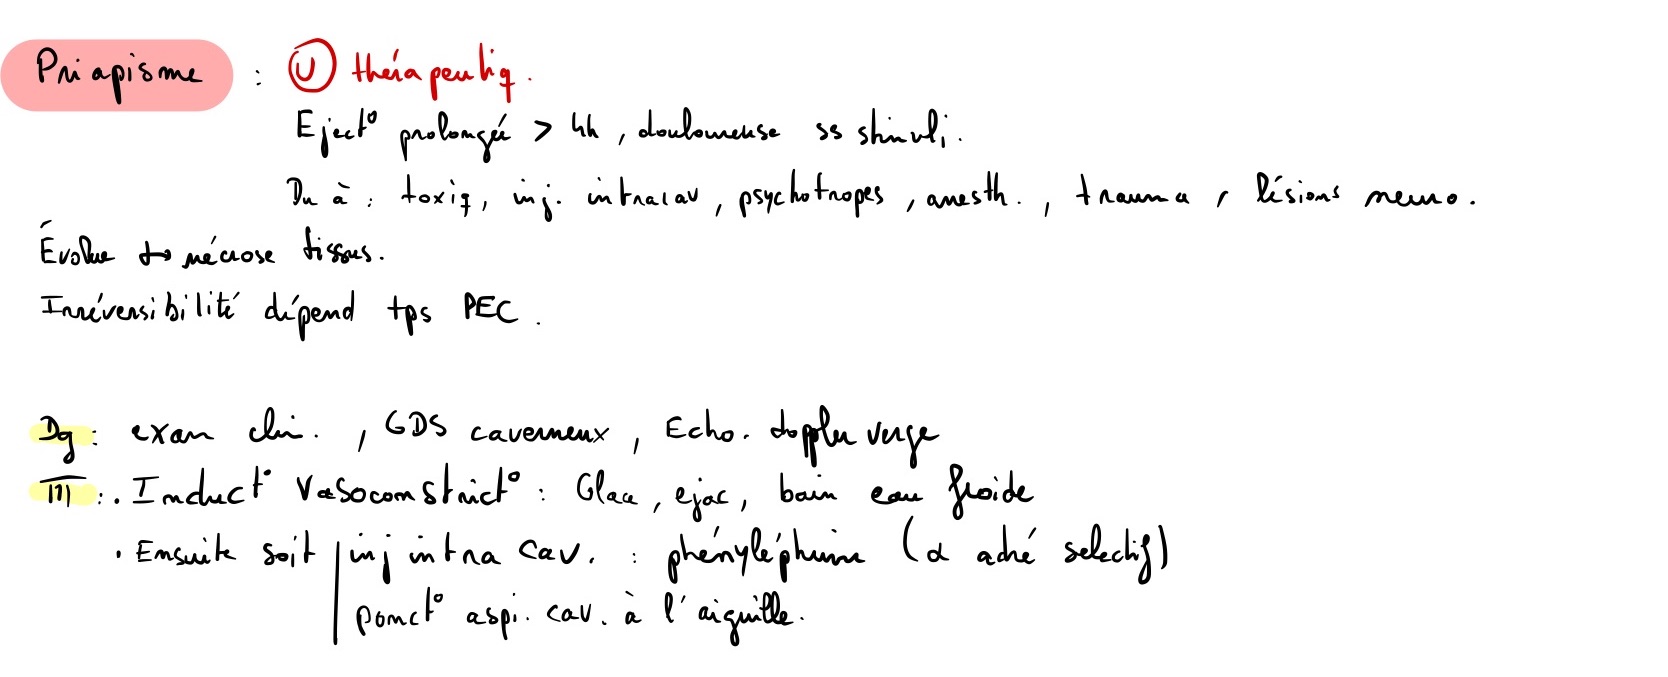 Priapisme : Ⓤ thérapeutiq.
Eject° prolongée > 4h, douloureuse ss stimuli.
Du à : toxiq, inj. intracav, psychotropes, anesth., trauma, lésions neuro.
Évolue → nécrose tissus.
Irréversibilité dépend tps PEC.
Dg : exam clin., GDS caverneux, Echo. doppler verge
TTT : . Induct° Vasoconstrict° : Glace, ejac, bain eau froide
. Ensuite soit | inj intra cav. : phényléphrine (α adré selectif)
| ponct° aspi. cav. à l'aiguille.